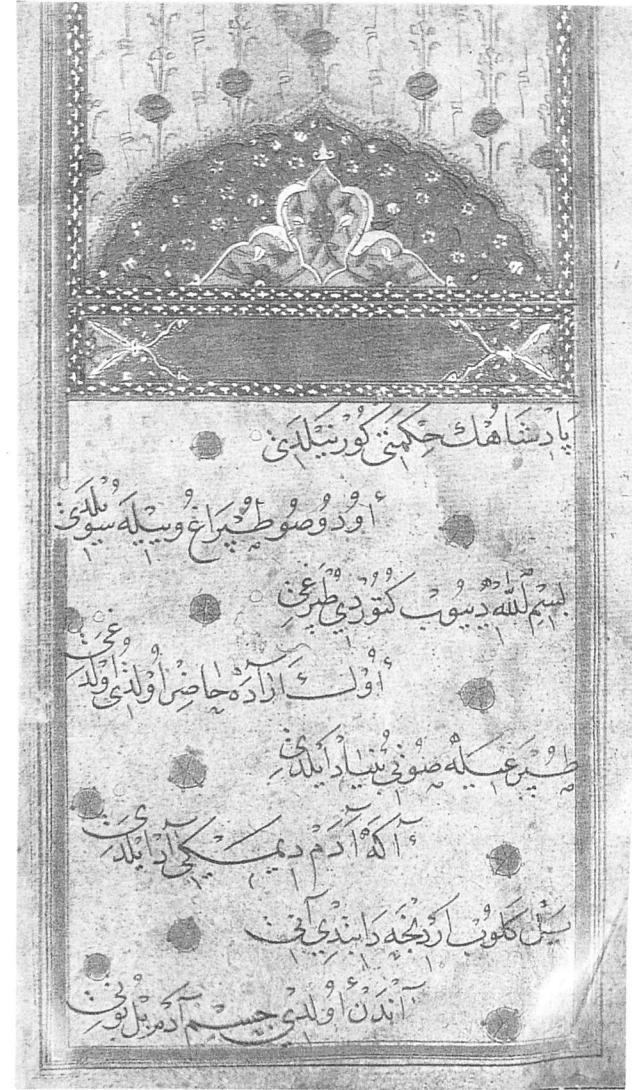 پادشاهك حكمتى كور نيلدى
اود و صو طپراغ و ييله سويلدى
بسم الله ديوب كتوردي طپرغى
اول ارآده حاضر اولدي اولدغى
طپرغيله صويى بنياد ايلدى
آكه آدم ديمكى آد ايلدى
ييل كلوب اردنجه دابندي آنى
آندن اولدي جسم آدم بل بونى